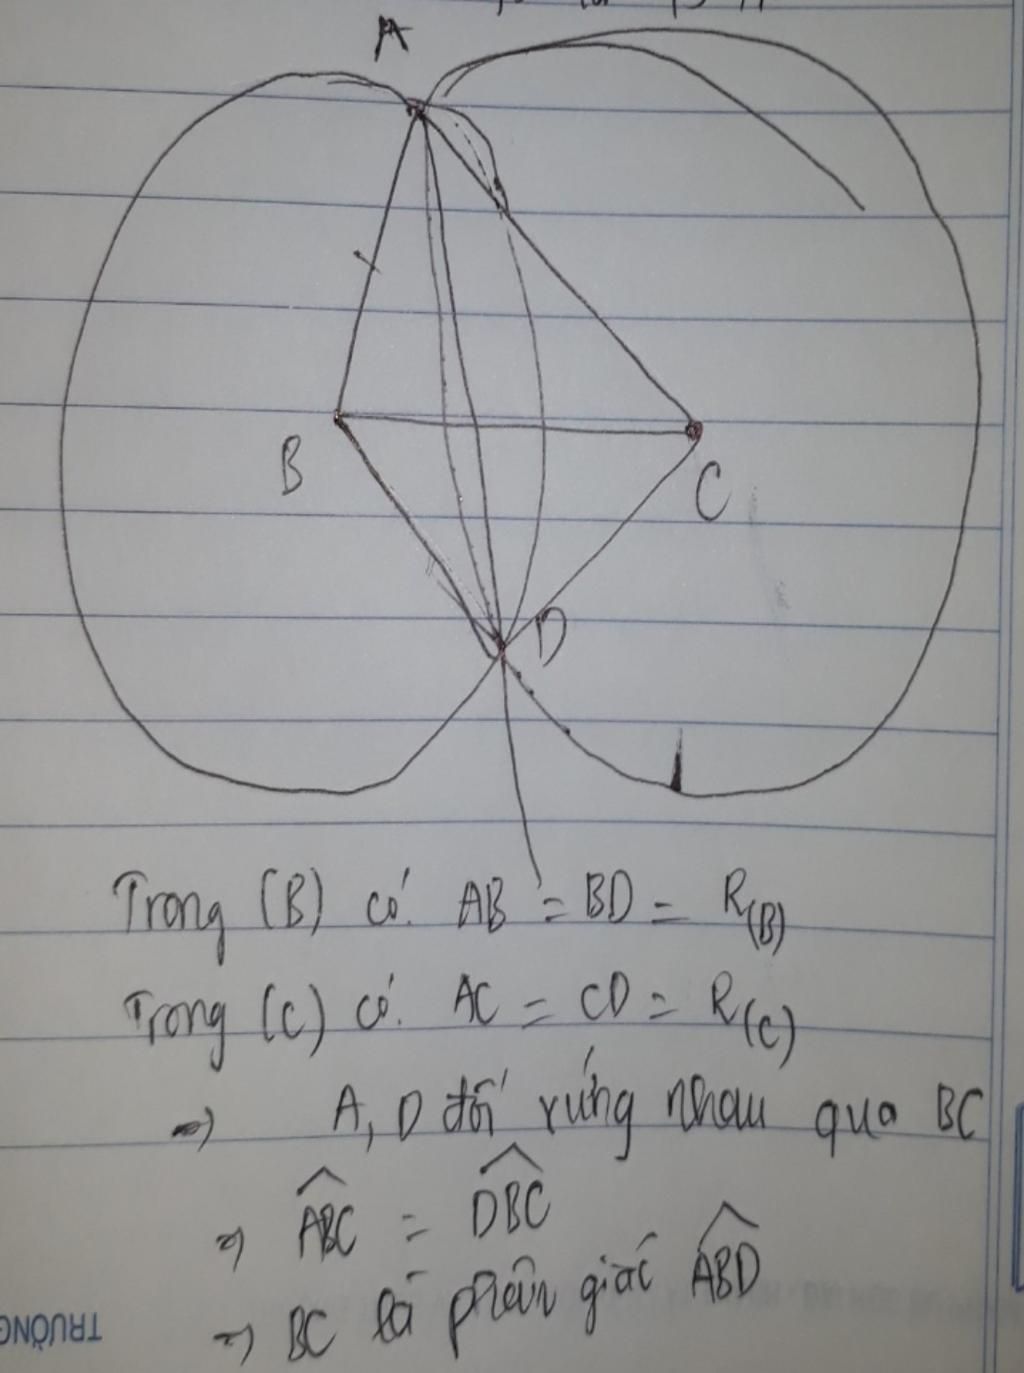 A
B
C
D
Trong (B) có: AB = BD = R(B)
Trong (C) có: AC = CD = R(C)
=> A, D đối xứng nhau qua BC
=> ABC = DBC
=> BC là phân giác ABD
TRƯỜNG